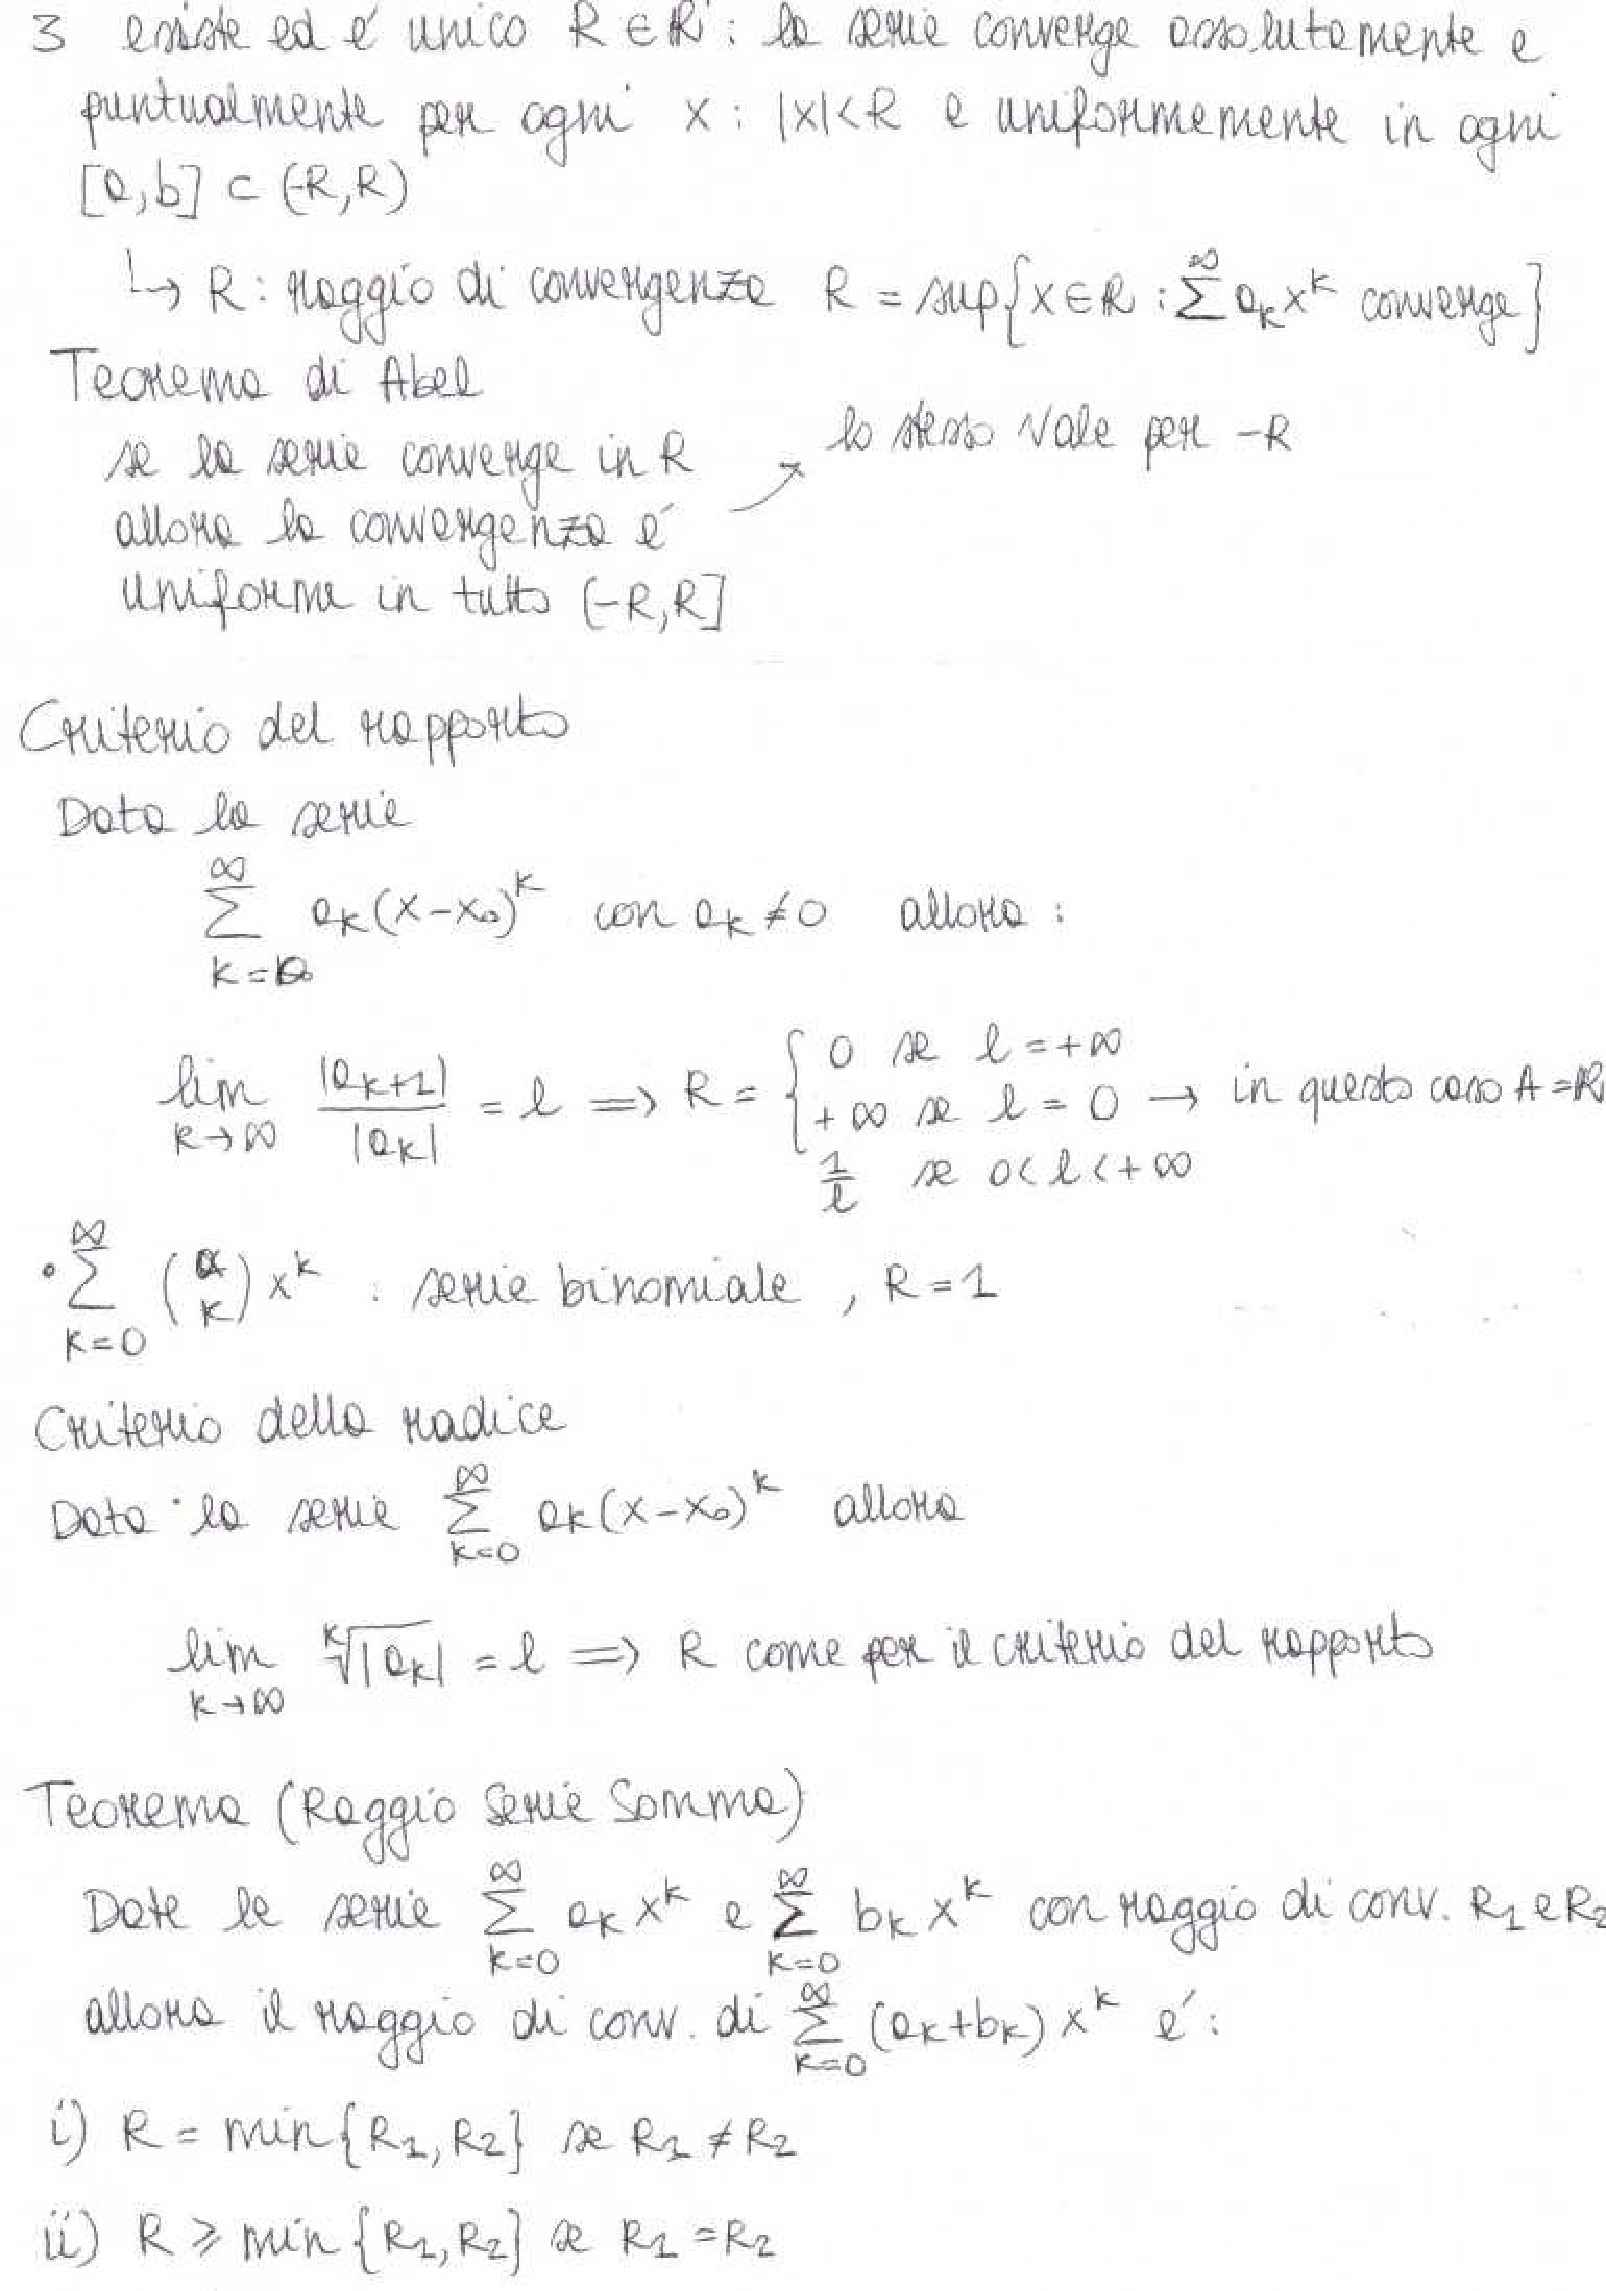 3 esiste ed é unico R ∈ ℝ : la serie converge assolutamente e
puntualmente per ogni x : |x|<R e uniformemente in ogni
[a,b] ⊂ (-R,R)
↳ R : raggio di convergenza R = sup{x∈ℝ : ∑^∞ a_k x^k converge}
Teorema di Abel
se la serie converge in R → lo stesso vale per -R
allora la convergenza é
uniforme in tutto (-R,R]
Criterio del rapporto
Data la serie
∑_{k=0}^∞ a_k(x-x₀)^k con a_k ≠ 0 allora :
lim_{k→∞} |a_{k+1}|/|a_k| = l ⇒ R = { 0 se l = +∞
+∞ se l = 0 → in questo caso A=ℝ
1/l se 0<l<+∞
• ∑_{k=0}^∞ (α k) x^k : serie binomiale , R = 1
Criterio della radice
Data la serie ∑_{k=0}^∞ a_k(x-x₀)^k allora
lim_{k→∞} ᵏ√|a_k| = l ⇒ R come per il criterio del rapporto
Teorema (Raggio Serie Somma)
Date le serie ∑_{k=0}^∞ a_k x^k e ∑_{k=0}^∞ b_k x^k con raggio di conv. R₁ e R₂
allora il raggio di conv. di ∑_{k=0}^∞ (a_k+b_k) x^k é :
i) R = min{R₁,R₂} se R₁ ≠ R₂
ii) R ≥ min{R₁,R₂} se R₁ = R₂